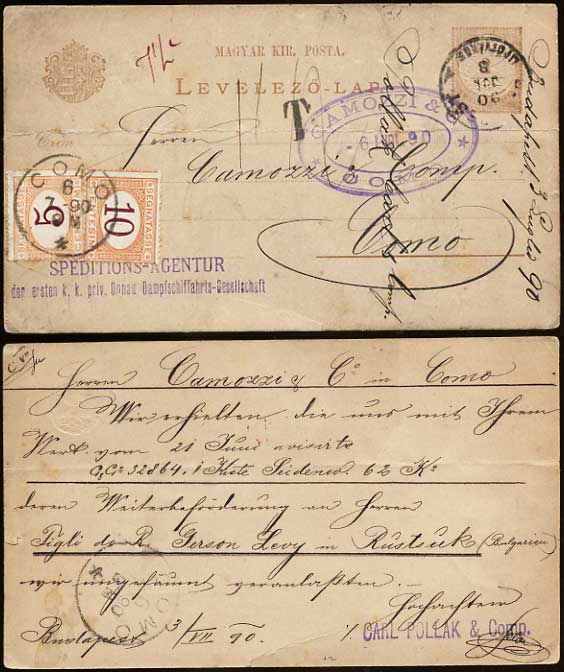 MAGYAR KIR. POSTA.
LEVELEZŐ-LAP
T
Herren
Czim
CAMOZZI & C.
- 6 LUGL 90
COMO
Camozzi & Comp.
Como
Budapest 3 Luglio 90
COMO
6
7-90
SEGNATASSE
5
SEGNATASSE
10
SPEDITIONS-AGENTUR
der ersten k. k. priv. Donau Dampfschiffahrts-Gesellschaft
Herren Camozzi & Co in Como
Wir erhielten die uns mit Ihrem
Werk. vom 21 Juni avisirte
CzCo 32864. 1 Kiste Seidenw. 62 Ko
deren Weiterbeförderung an Herren
Figli di R. Gerson Levy in Rustsuk (Bulgarien)
wir ungesäumt veranlaßten
Hochachtend
Budapest 3/VII 90.
CARL POLLAK & Comp.